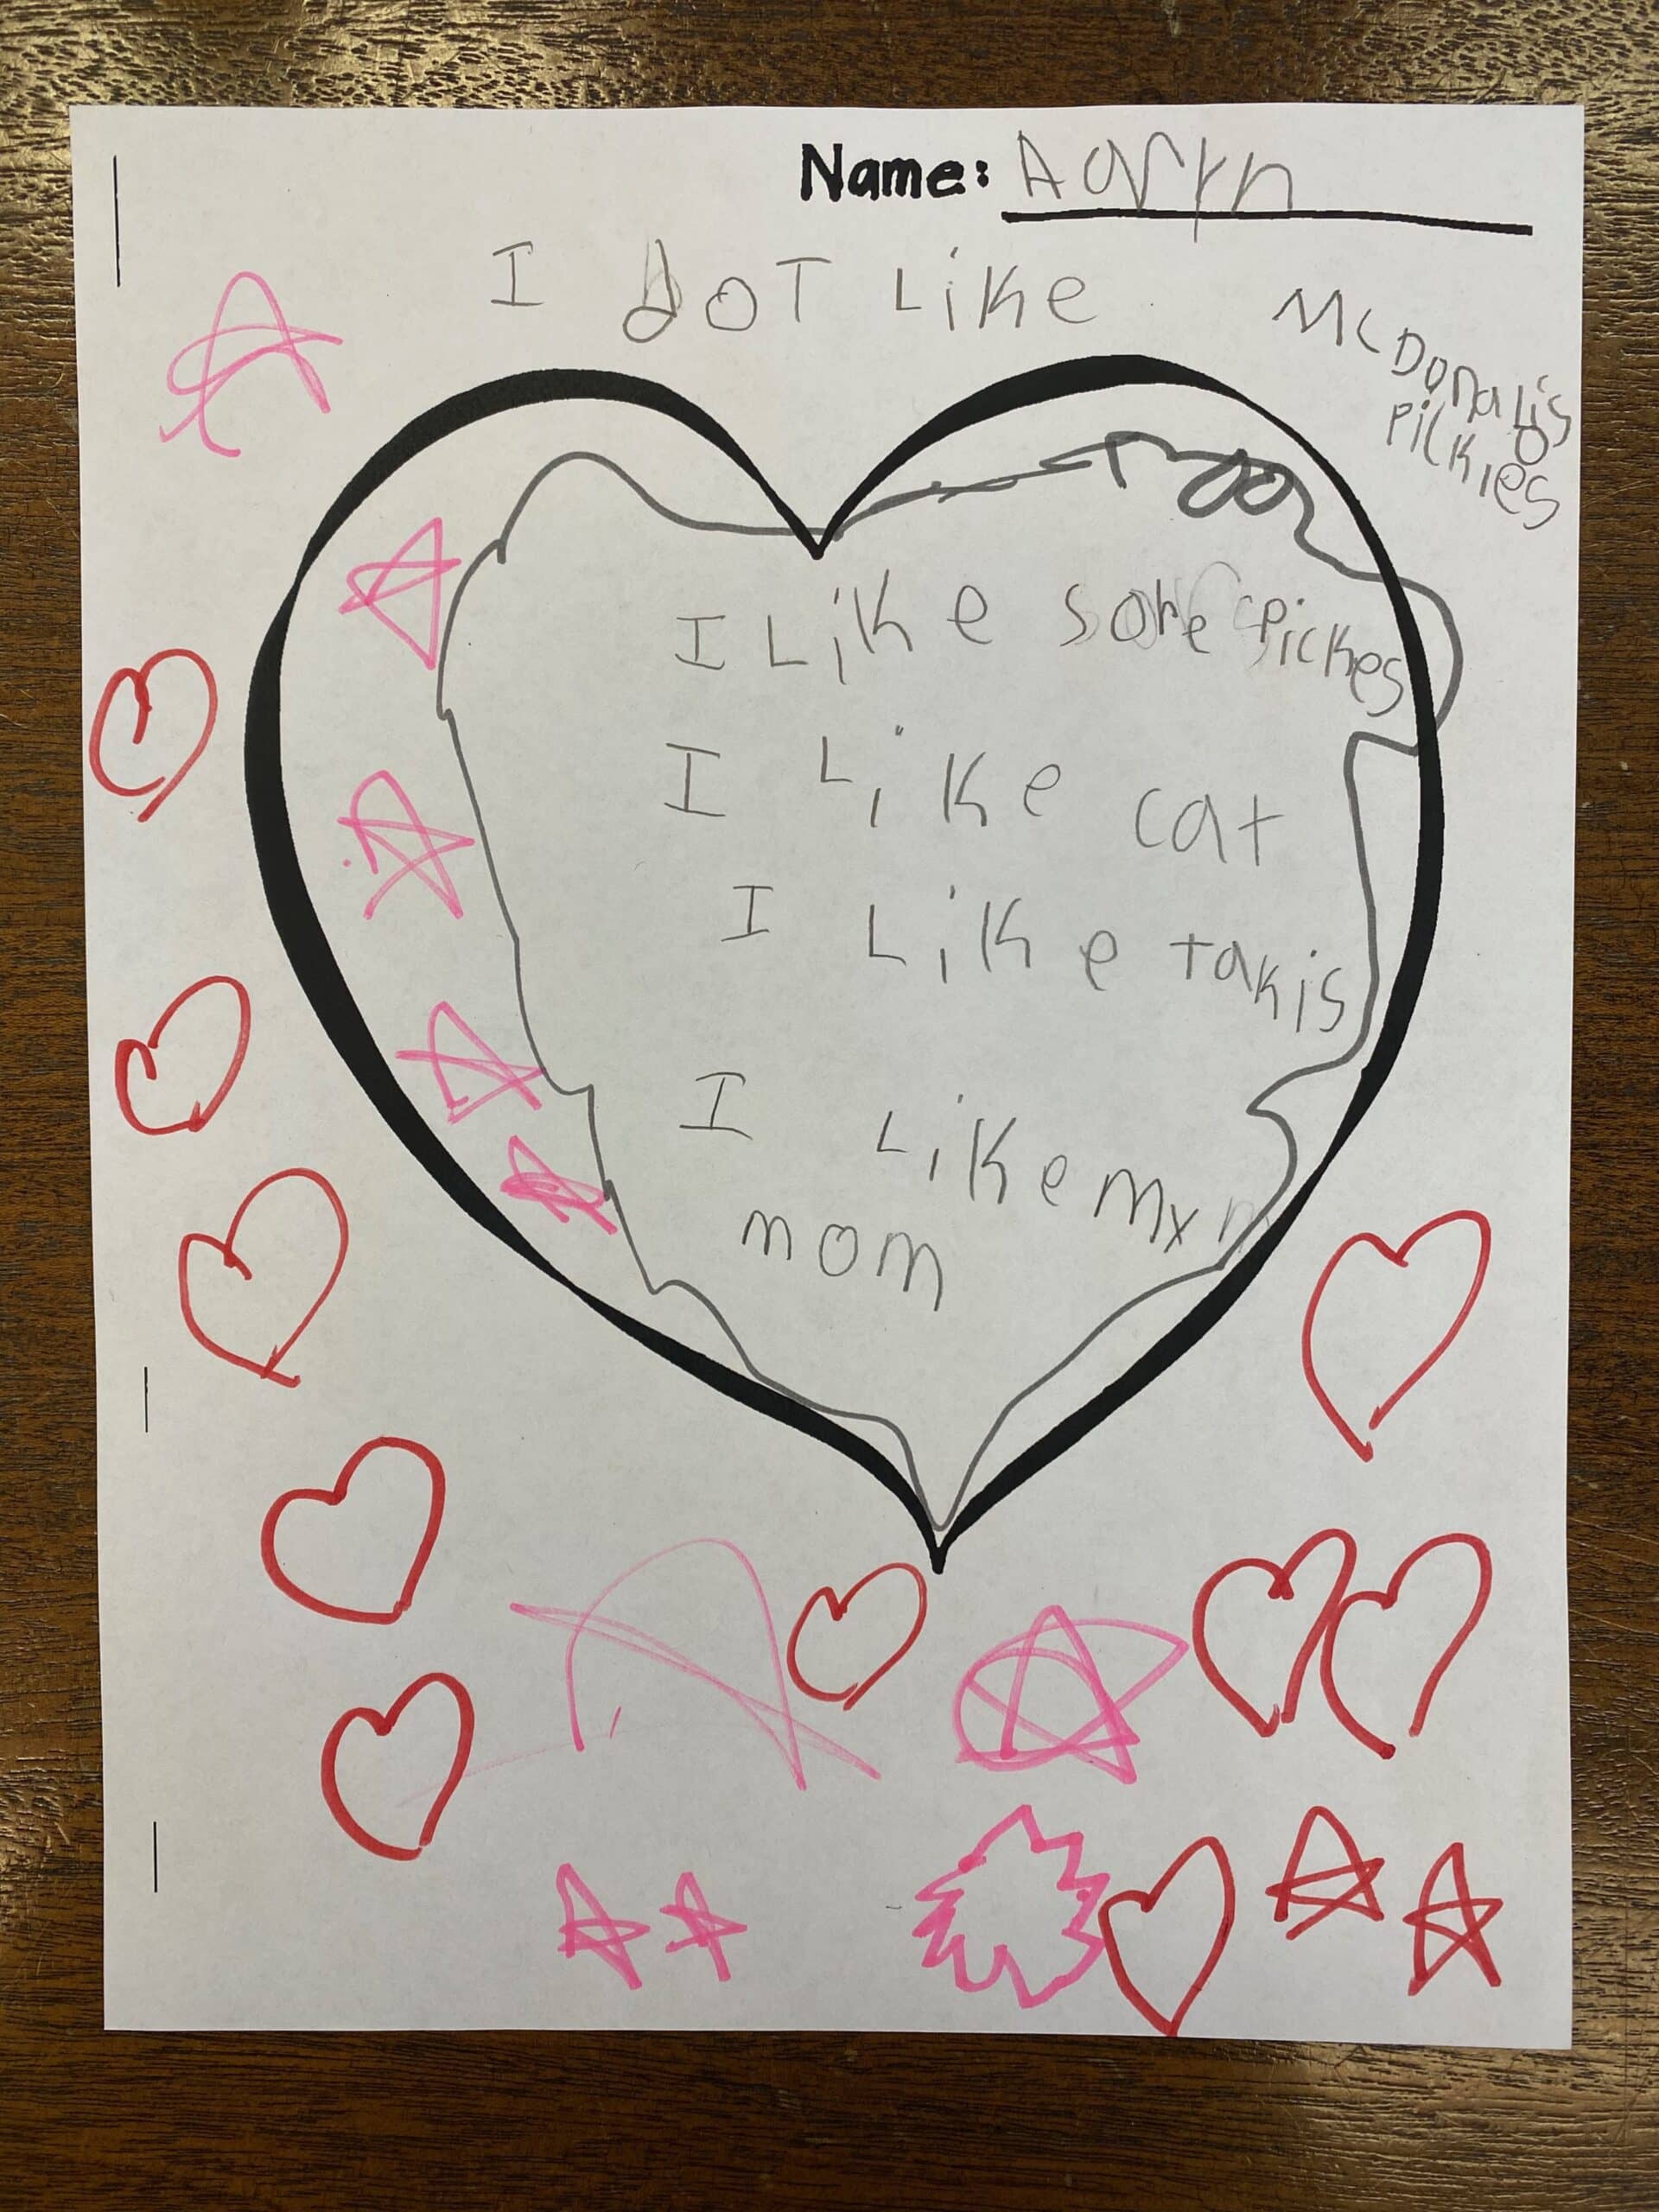 Name: Aaryn
I dOT Like
McDonalds
Pickles
I Like some Pickes
I Like cat
I Like takis
I Like my m
mom